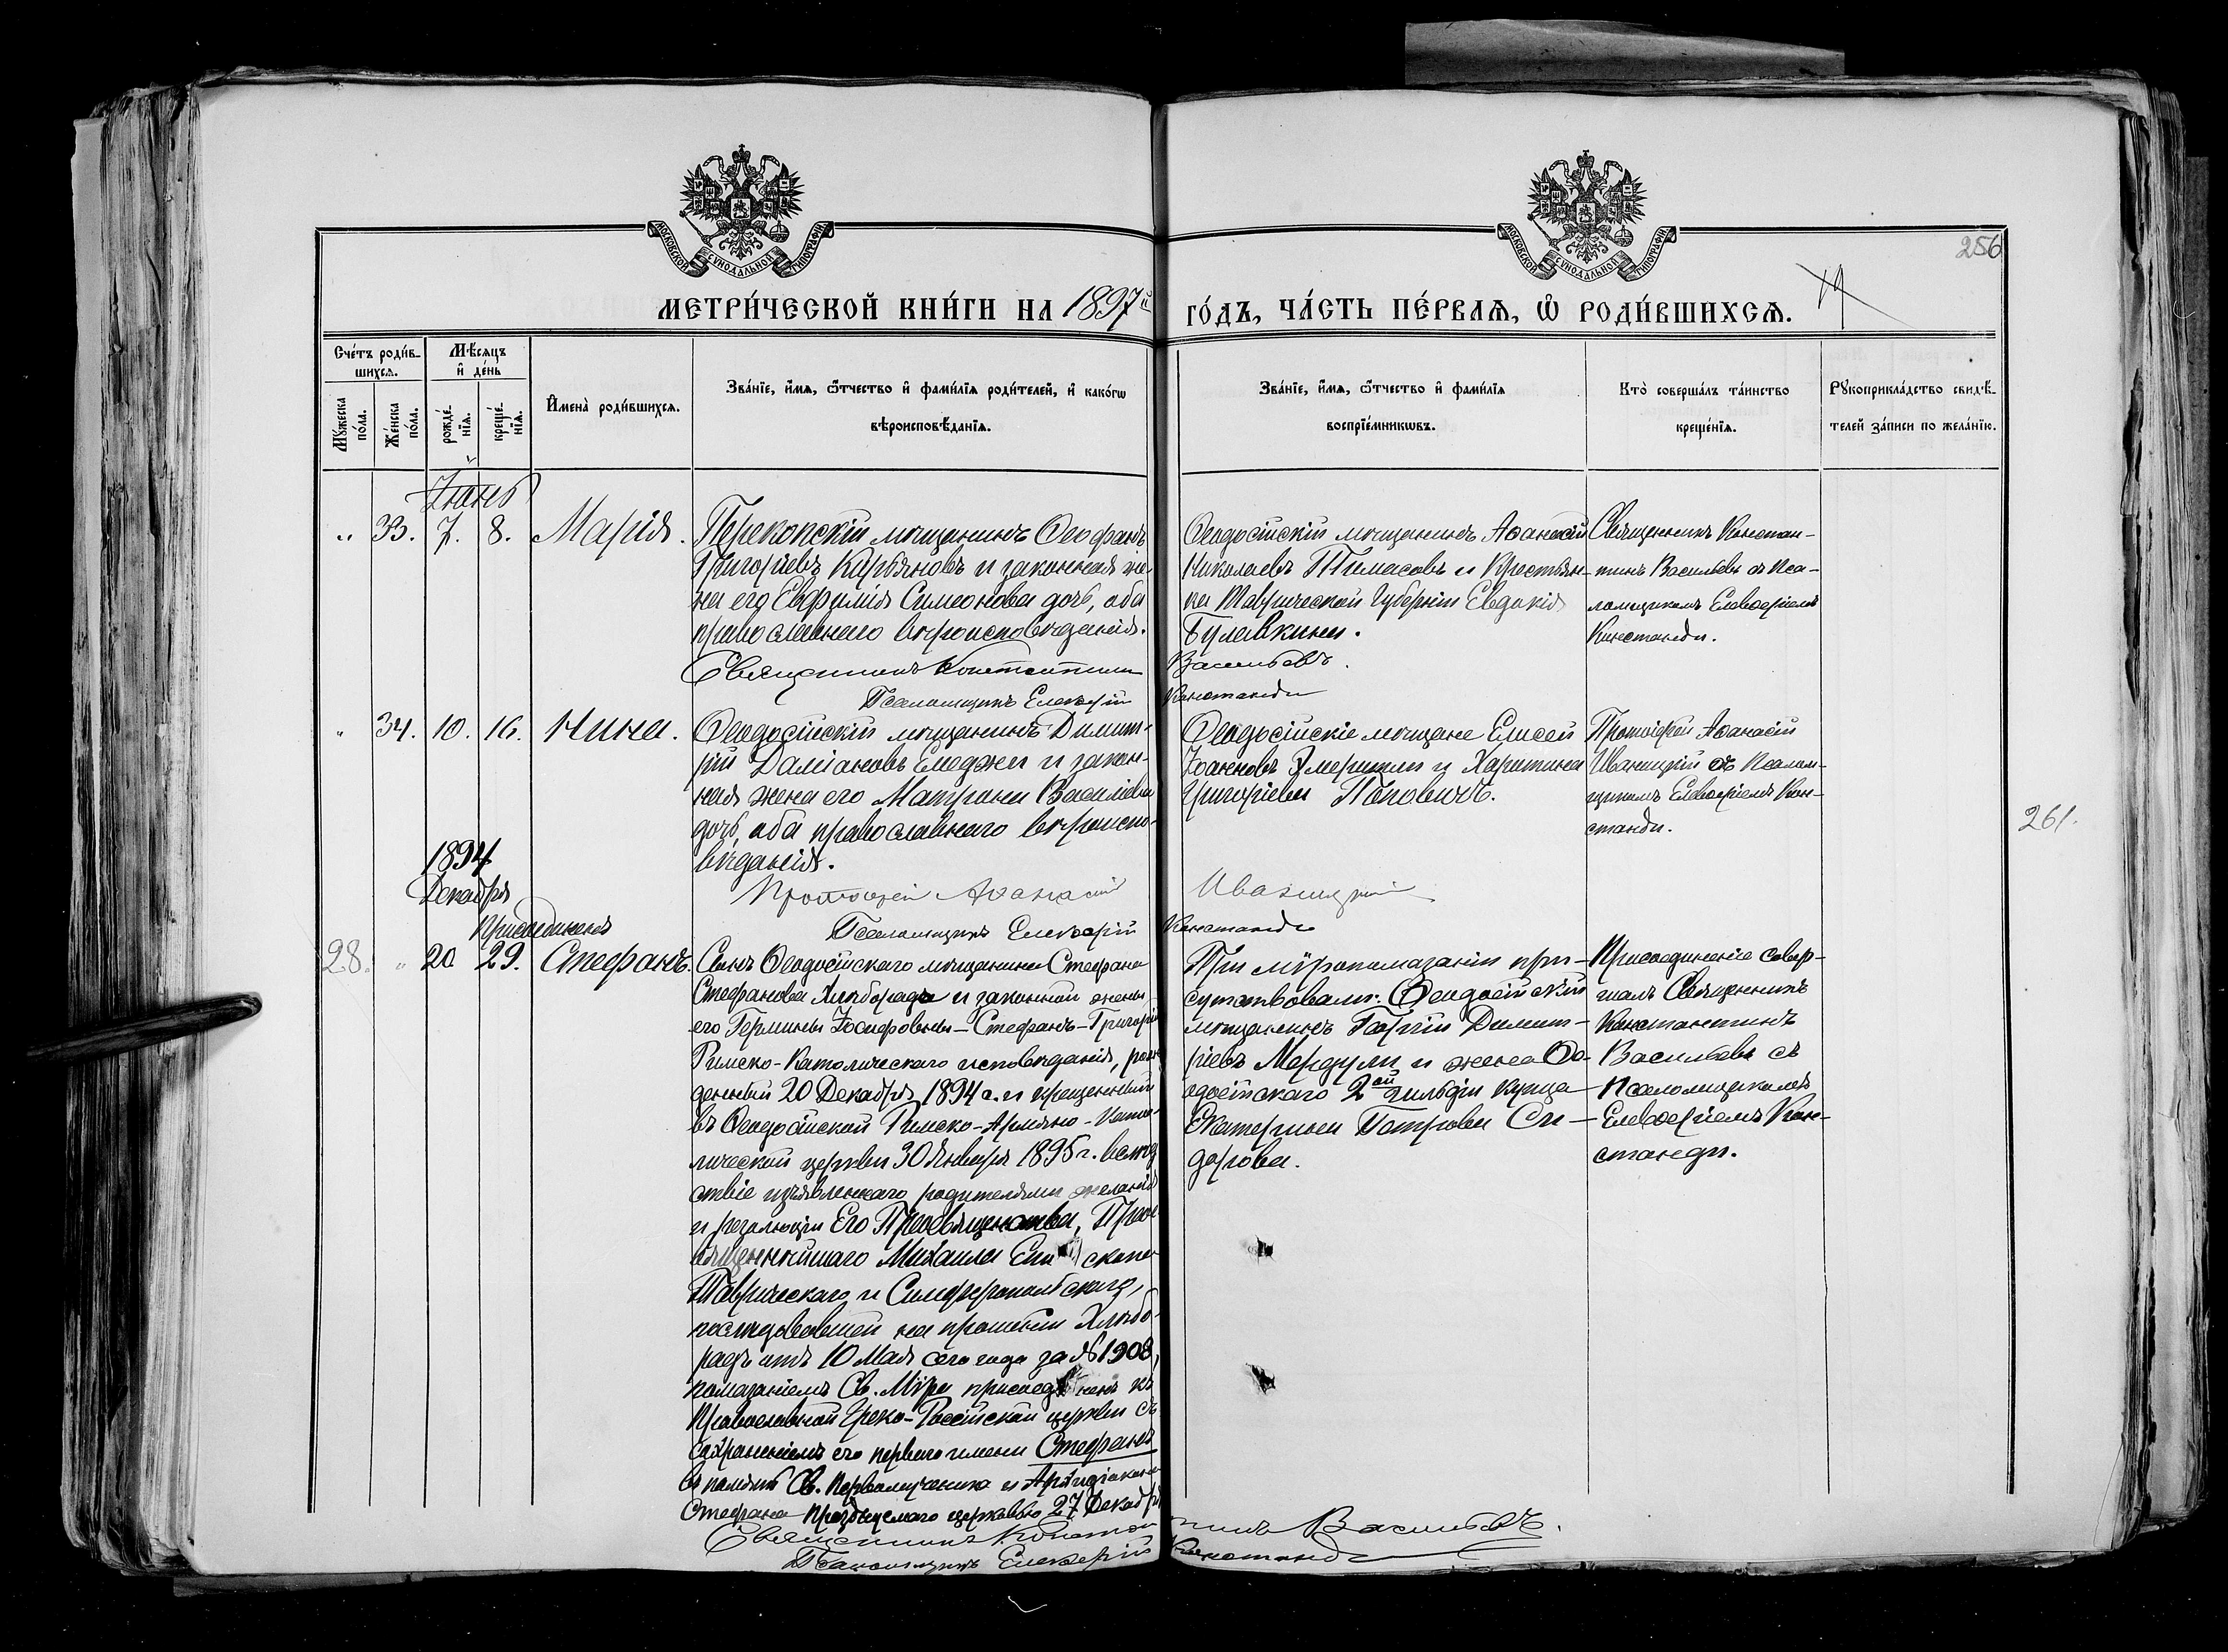 МОСКОВСКОЙ СѴНОДАЛЬНОЙ ТИПОГРАФІИ
МОСКОВСКОЙ СѴНОДАЛЬНОЙ ТИПОГРАФІИ
256
МЕТРИ́ЧЕСКОЙ КНИ́ГИ НА 1897й ГО́ДЪ, ЧА́СТЬ ПЕ́РВАЯ, Ѡ҆ РОДИ́ВШИХСЯ.
Сче́тъ роди́в-
шихся.
Мѣ́сяцъ
и҆ де́нь
Мꙋ́жеска
по́ла.
Же́нска
по́ла.
рожде́-
нїя.
креще́-
нїя.
И҆мена̀ роди́вшихся.
Зва́нїе, и҆́мя, ѻ҆́тчество и҆ фами́лїя роди́телей, и҆ како́гѡ
вѣроисповѣ́данїя.
Зва́нїе, и҆́мя, ѻ҆́тчество и҆ фами́лїя
воспрїе́мникѡвъ.
Кто̀ соверша́лъ та́инство
креще́нїя.
Рꙋкоприкла́дство свидѣ́-
телей за́писи по жела́нїю.
Іюнь
" 33. 7. 8. Марія.
Перекопскій мѣщанинъ Ѳеофанъ
Григорьевъ Кирьяновъ и законная же-
на его Евфимія Симеонова дочь, оба
православнаго вѣроисповѣданія.
Священникъ Константинъ Васильевъ.
Псаломщикъ Елевѳерій Констанди
Ѳеодосійскій мѣщанинъ Аѳанасій
Николаевъ Тимасовъ и Крестьян-
ка Таврической Губерніи Евдокія
Булавкина.
Священникъ Констан-
тинъ Васильевъ съ Пса-
ломщикомъ Елевѳеріемъ
Констанди.
" 34. 10. 16. Нина.
Ѳеодосійскій мѣщанинъ Димит-
рій Даміановъ Емеджи и закон-
ная жена его Матрона Василіева
дочь, оба православнаго вѣроиспо-
вѣданія.
Протоіерей Аѳанасій Иваницкій
Псаломщикъ Елевѳерій Констанди
Ѳеодосійскіе мѣщане Елисей
Іоанновъ и Харитина
Григоріева Поповичъ.
Протоіерей Аѳанасій
Иваницкій съ Псалом-
щикомъ Елевѳеріемъ Кон-
станди.
261.
1894
Декабря
Присоединенъ
28. " 20 29. Стефанъ.
Сынъ Ѳеодосійскаго мѣщанина Стефана
Стефанова Хлѣборадъ и законной жены
его Гермины Іосифовны - Стефанъ-Григорій
Римско-Католическаго исповѣданія, рож-
денный 20 Декабря 1894 г. и крещенный
въ Ѳеодосійской Римско-Армяно-Като-
лической церкви 30 Января 1895 г. вслѣд-
ствіе изъявленнаго родителями желанія
и резолюціи Его Преосвященства, Преос-
вященнѣйшаго Михаила Епископа
Таврическаго и Симферопольскаго,
послѣдовавшей на прошеніи Хлѣбо-
радъ отъ 10 Мая сего года за № 1908,
помазаніемъ Св. Мѵра присоединенъ къ
Православной Греко-Россійской церкви съ
сохраненіемъ его перваго имени Стефанъ
въ память Св. Первомученика и Архидіакона
Стефана празднуемаго церковью 27 Декабря
Священникъ Константинъ Васильевъ.
Псаломщикъ Елевѳерій Констанди
При мѵропомазаніи при-
сутствовали: Ѳеодосійскій
мѣщанинъ Георгій Димит-
ріевъ Мердули и жена Ѳе-
одосійскаго 2ой гильдіи купца
Екатерина Петрова Си-
дорова.
Присоединеніе совер-
шалъ Священникъ
Константинъ
Васильевъ съ
Псаломщикомъ
Елевѳеріемъ Кон-
станди.